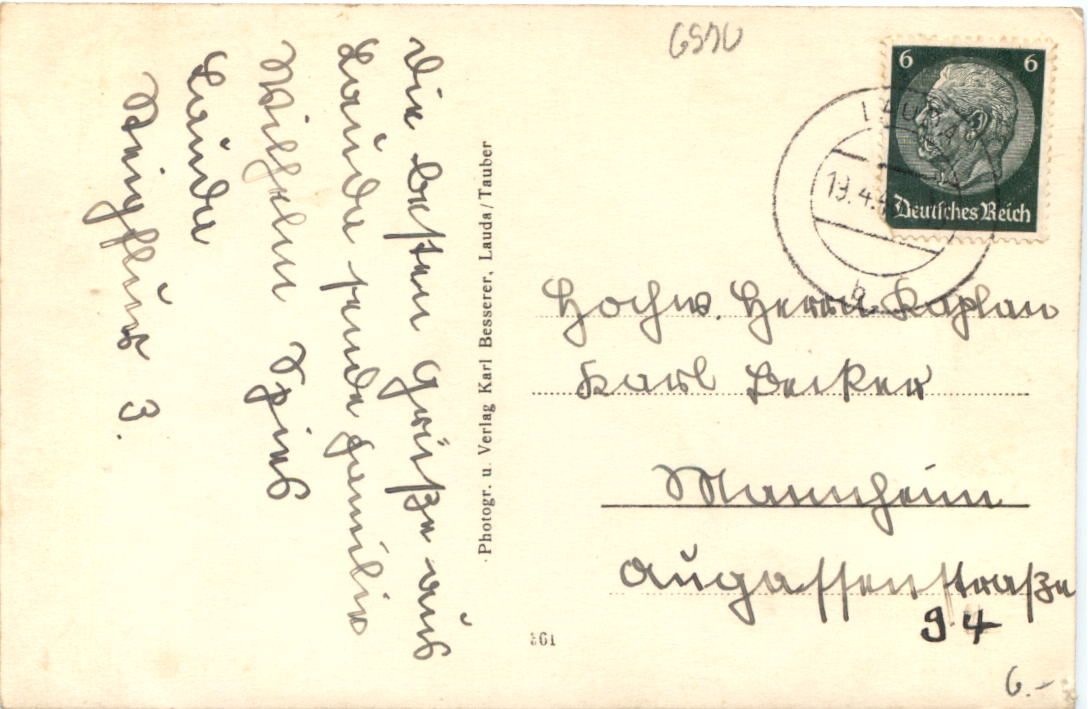 Die besten Grüße aus
Lauda sendet Familie
Wilhelm Spies
Lauda
Ringstraße 3.
Photogr. u. Verlag Karl Besserer, Lauda/Tauber
6 6
Deutsches Reich
LAUDA
19.4.
b
Hochw. Herrn Kaplan
Karl Becker
Mannheim
Augassenstraße
94
361
6.-